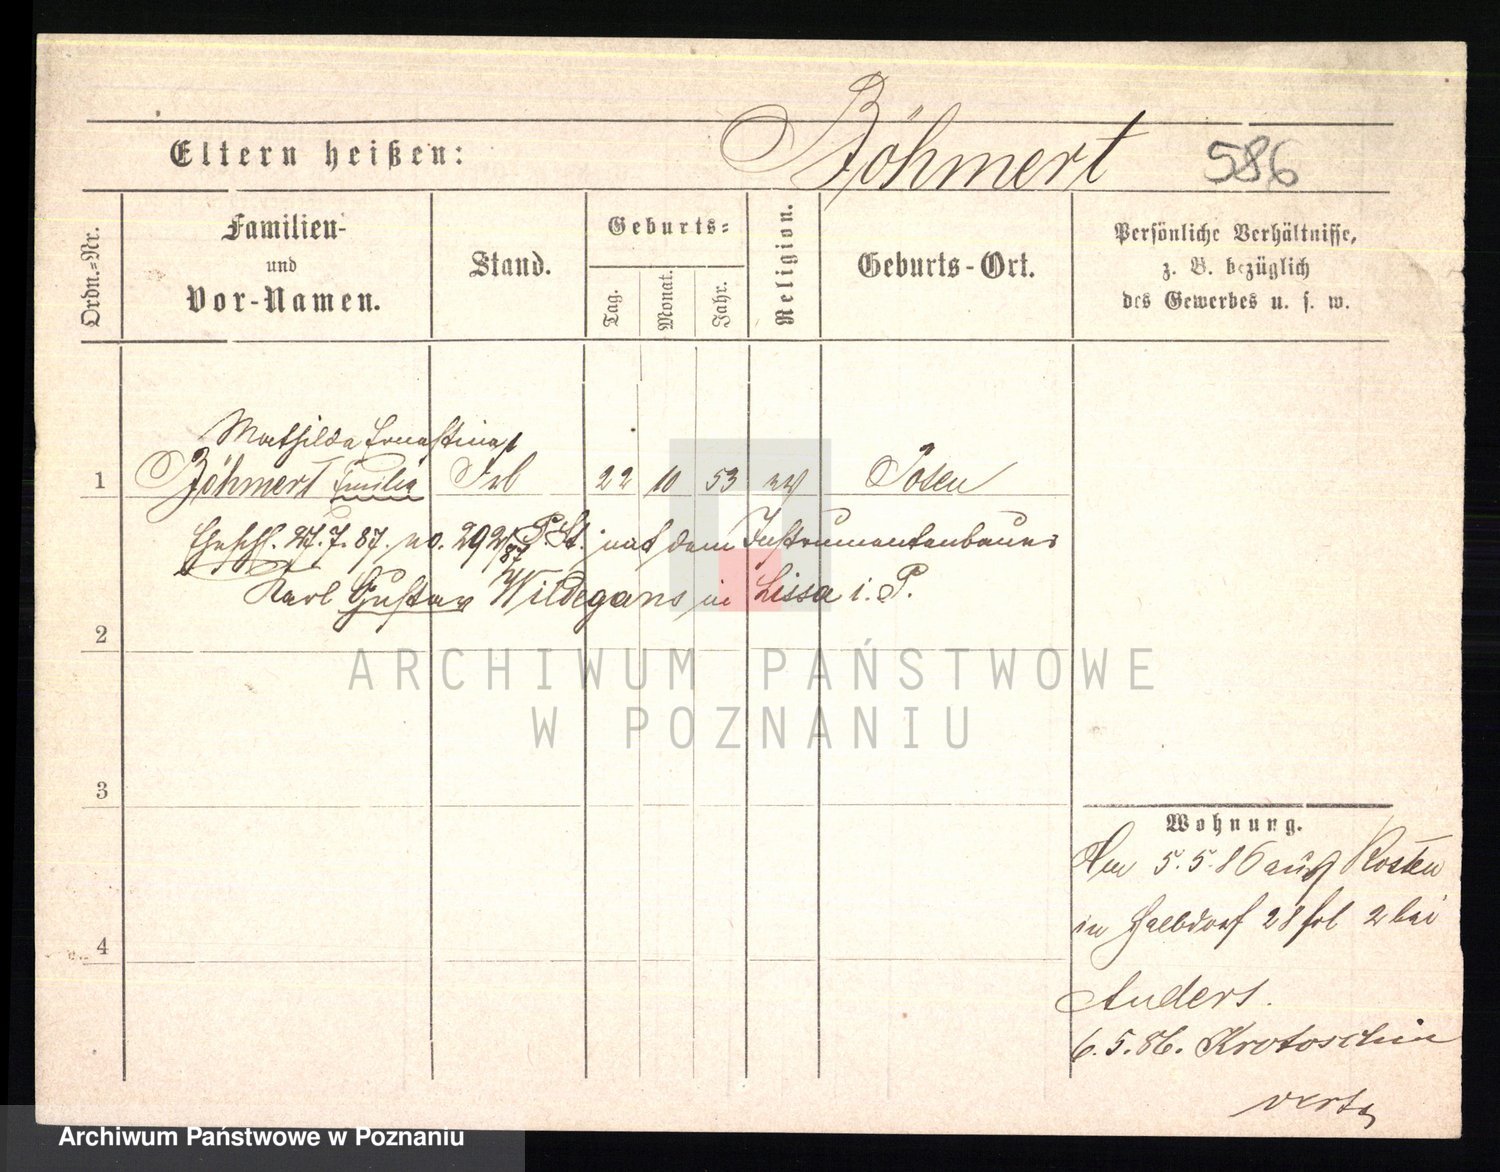 Eltern heißen:
Böhmert
586
Ordn.=Nr.
Familien-
und
Vor-Namen.
Stand.
Geburts=
Tag.
Monat.
Jahr.
Religion.
Geburts-Ort.
Persönliche Verhältnisse,
z. B. bezüglich
des Gewerbes u. s. w.
Mathilda Ernestina
1 Böhmert Emilie 22 10 53 ev Posen
27.7.87. no. 292/87 P. St. mit dem Instrumentenbauer
Karl Gustav Wildegans in Lissa i. P.
2
3
4
Wohnung.
Am 5.5.86 aus Kosten
in Halbdorf 28 2 bei
Anders.
6.5.86. Krotoschin
ARCHIWUM PAŃSTWOWE
W POZNANIU
Archiwum Państwowe w Poznaniu